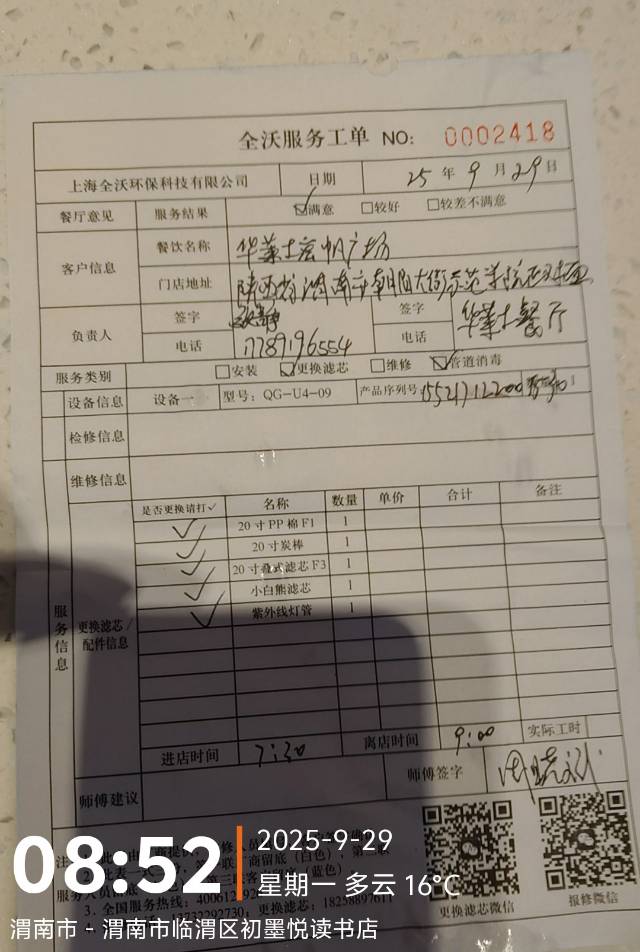 全沃服务工单 NO: 0002418
上海全沃环保科技有限公司 日期 25 年 9 月 29 日
餐厅意见 服务结果 ☑满意 □较好 □较差不满意
客户信息 餐饮名称 华莱士宏帆广场
门店地址 陕西省渭南市朝阳大街师范学院正对面
负责人 签字 签字 华莱士餐厅
电话 17789196554 电话
服务类别 □安装 ☑更换滤芯 □维修 ☑管道消毒
设备信息 设备一 型号：QG-U4-09 产品序列号
检修信息
维修信息
服务信息 更换滤芯/配件信息
是否更换请打✓ 名称 数量 单价 合计 备注
✓ 20寸PP棉F1 1
✓ 20寸炭棒 1
✓ 20寸叠式滤芯F3 1
✓ 小白熊滤芯 1
✓ 紫外线灯管 1
进店时间 7:30 离店时间 9:00 实际工时
师傅建议 师傅签字
更换滤芯微信 报修微信
08:52
2025-9-29
星期一 多云 16℃
渭南市 - 渭南市临渭区初墨悦读书店